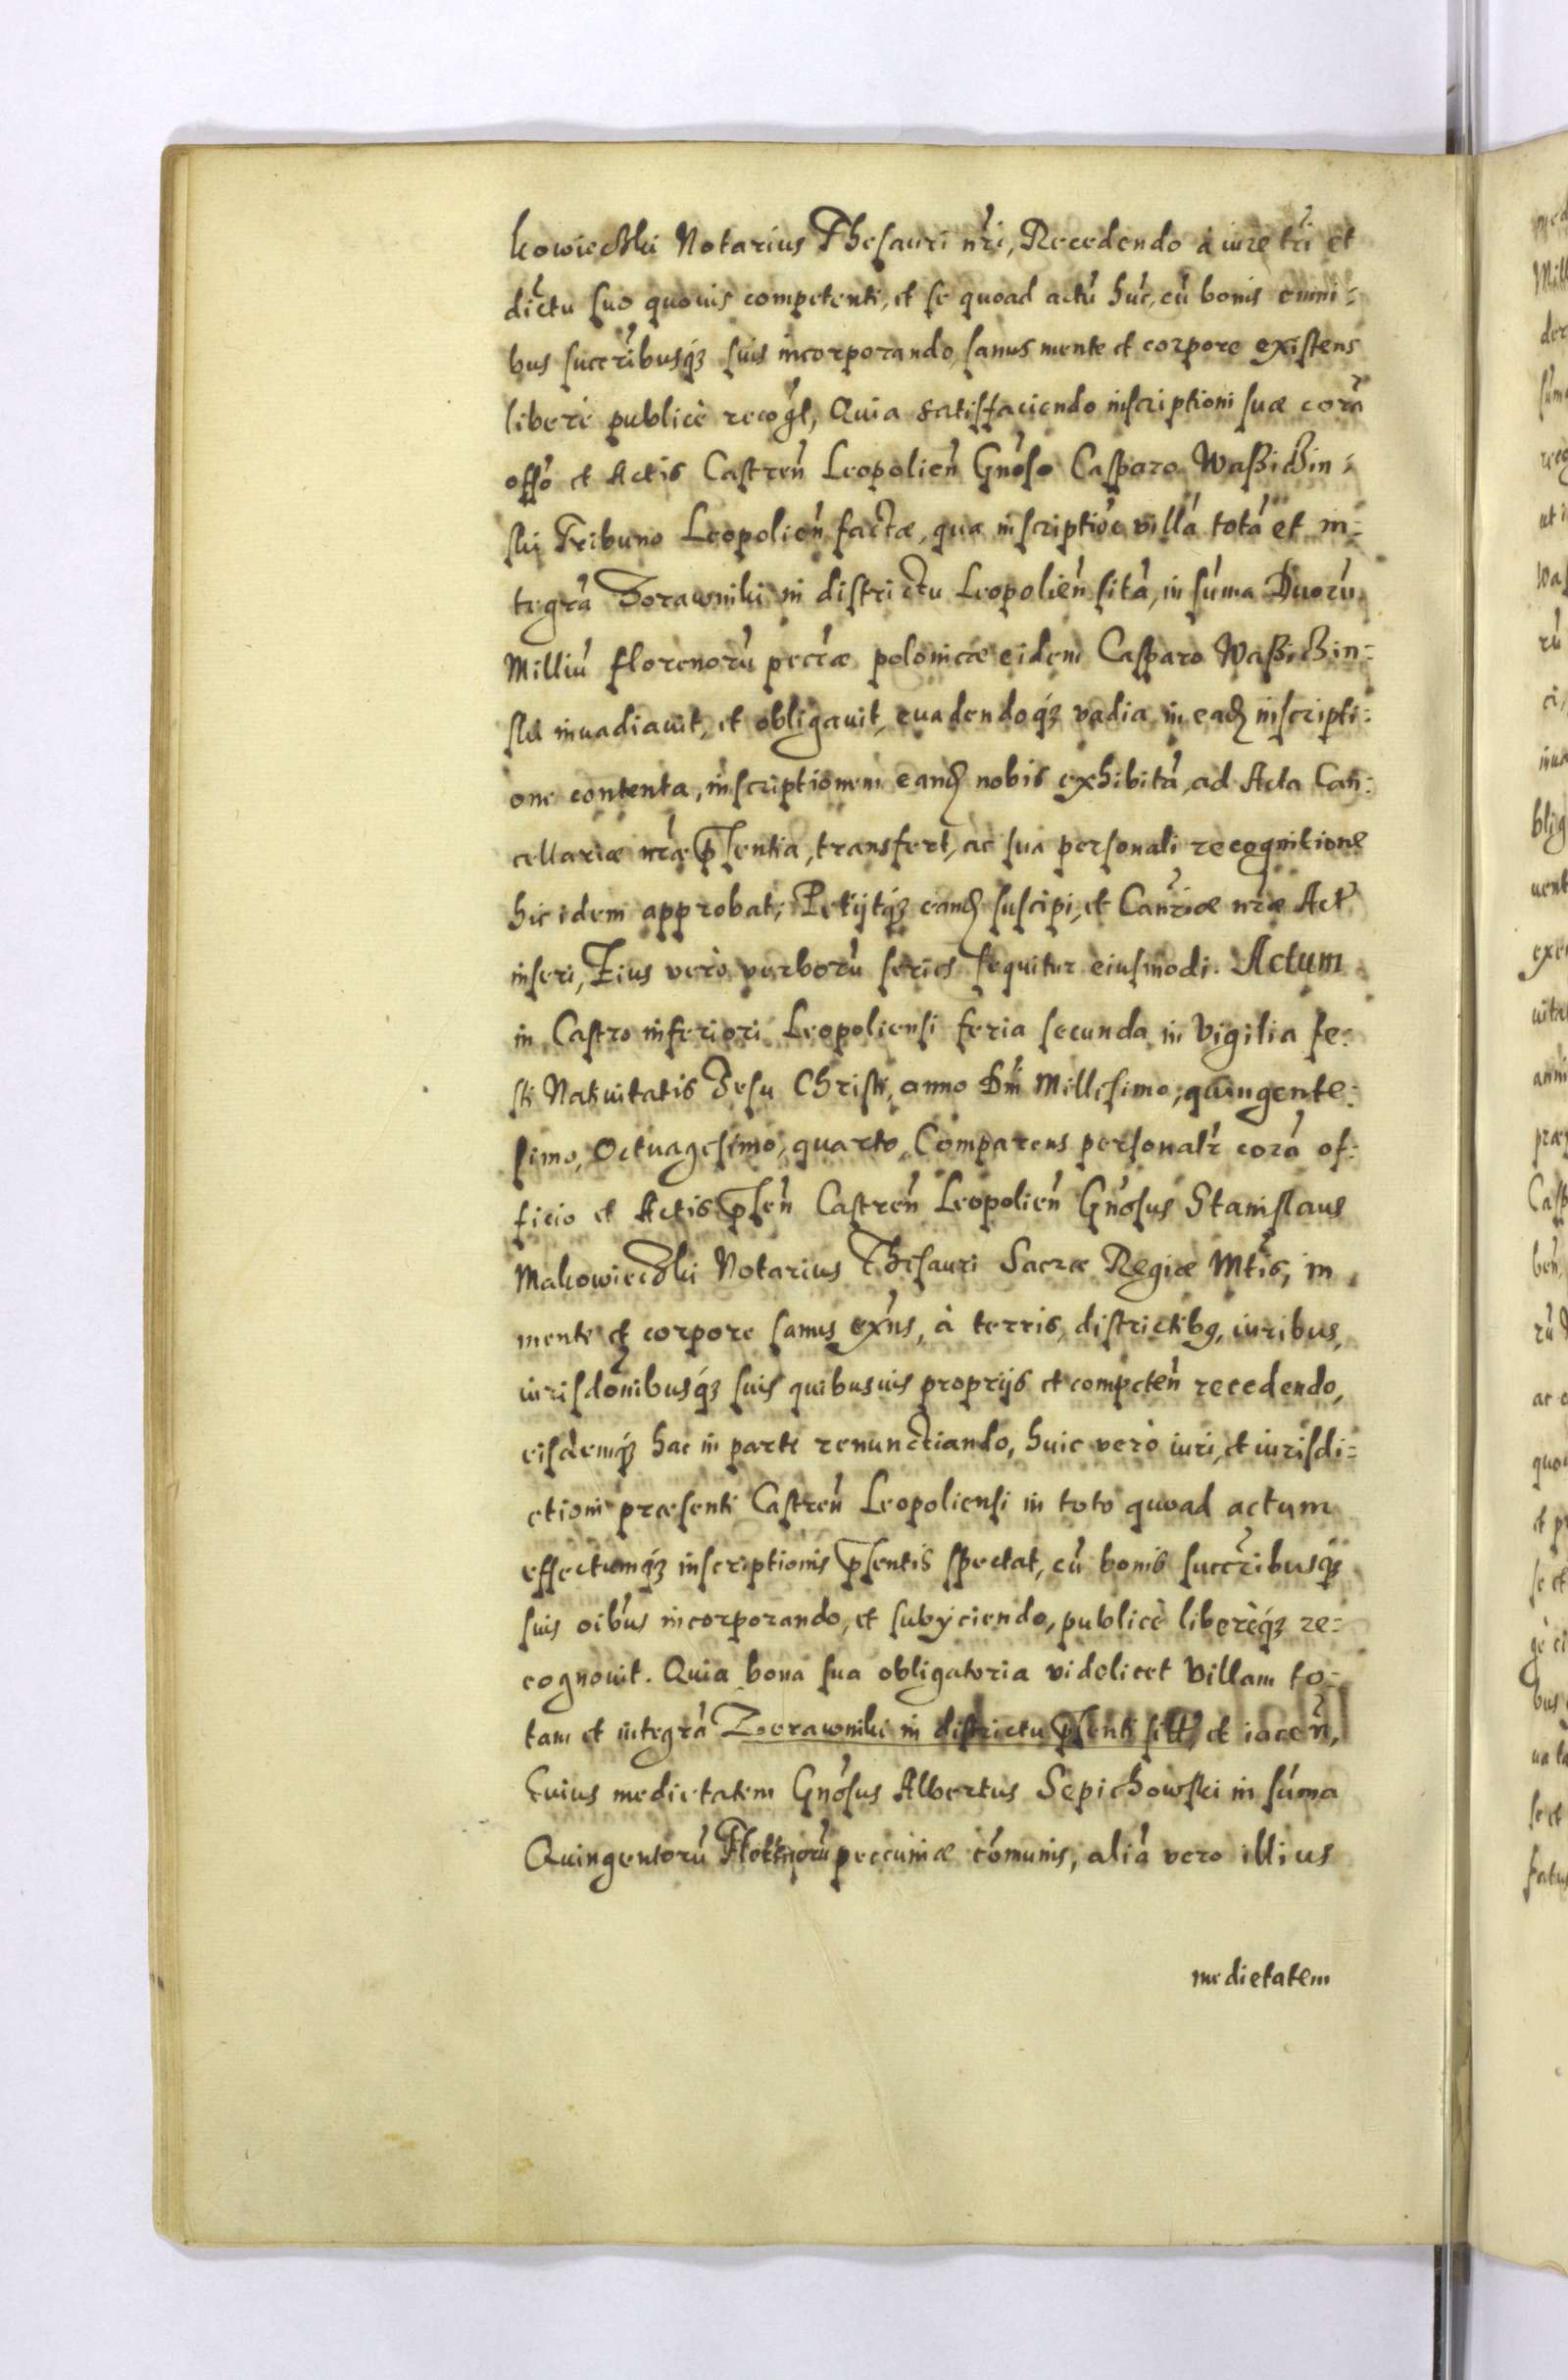 kowieczki Notarius Thesauri nr̃i, Recedendo à iure tr̃i et
dictu suo quouis competenti, et se quoad actũ hũc, cũ bonis omni=
bus succr̃ibusq́ȝ suis incorporando, sanus mente et corpore existens
liberè publicè recogt̃, Quia satisfaciendo inscriptioni suæ corã
offo᷃ et Actis Castren̄ Leopolien̄ Gño̅so Casparo Waßiczin=
ski Tribuno Leopolien̄ factæ, qua inscriptiõe villã totã et in=
tegrã Zorawniki in districtu Leopolien̄ sitã, in sum̃a Duorũ
Milliũ florenorũ pecr̃æ polonicæ eidem Casparo Waßiczin=
ski inuadiauit, et obligauit, euadendoq́ȝ vadia in eadȝ inscripti=
one contenta, inscriptionem eandȝ nobis exhibitã, ad Acta Can=
cellariæ nr̃æ p̄sentia, transfert, ac sua personali recognitione
hic idem approbat, Petijtq́ȝ eandȝ suscipi, et Canr̃iæ nr̃æ Act̃
inseri, Eius verò verborũ series sequitur eiusmodi. Actum
in Castro inferiori Leopoliensi feria secunda in Vigilia fe=
sti Natiuitatis Iesu Christi, anno Dñi Millesimo, quingente=
simo, Octuagesimo, quarto, Comparens personalr̃ corã of=
ficio et Actis p̄sen̄ Castren̄ Leopolien̄ Gño̅sus Stanislaus
Makowieczki Notarius Thesauri Sacræ Regiæ Mtis̃, in
mente et corpore sanus exñs, à terris, districtibꝯ, iuribus,
iurisdõnibusq́ȝ suis quibusuis proprijs et competen̄ recedendo,
eisdemq́ȝ hac in parte renunctiando, huic verò iuri, et iurisdi=
ctioni præsenti Castren̄ Leopoliensi in toto quoad actum
effectumq́ȝ inscriptionis p̄sentis spectat, cũ bonis succr̃ibusq́ȝ
suis oib̃us incorporando, et subijciendo, publicè liberèq́ȝ re=
cognouit. Quia bona sua obligatoria videlicet Villam to=
tam et integrã Zorawniki in districtu p̄senti sitt̃, et iacen̄,
Cuius medietatem Gño̅sus Albertus Sepichowski in sum̃a
Quingentorũ Florenorũ peccuniæ com̃unis, aliã vero illius
medietatem